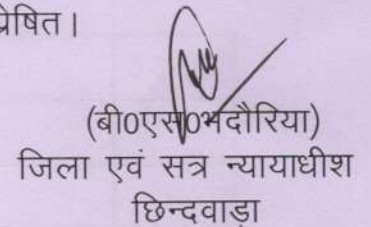 प्रेषित।
(बी0एस0भदौरिया)
जिला एवं सत्र न्यायाधीश
छिन्दवाड़ा